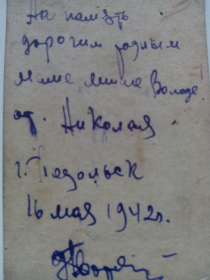 На память
дорогим родным
Маме, Вол
от Николая
г. Подольск
16 мая 1942г.